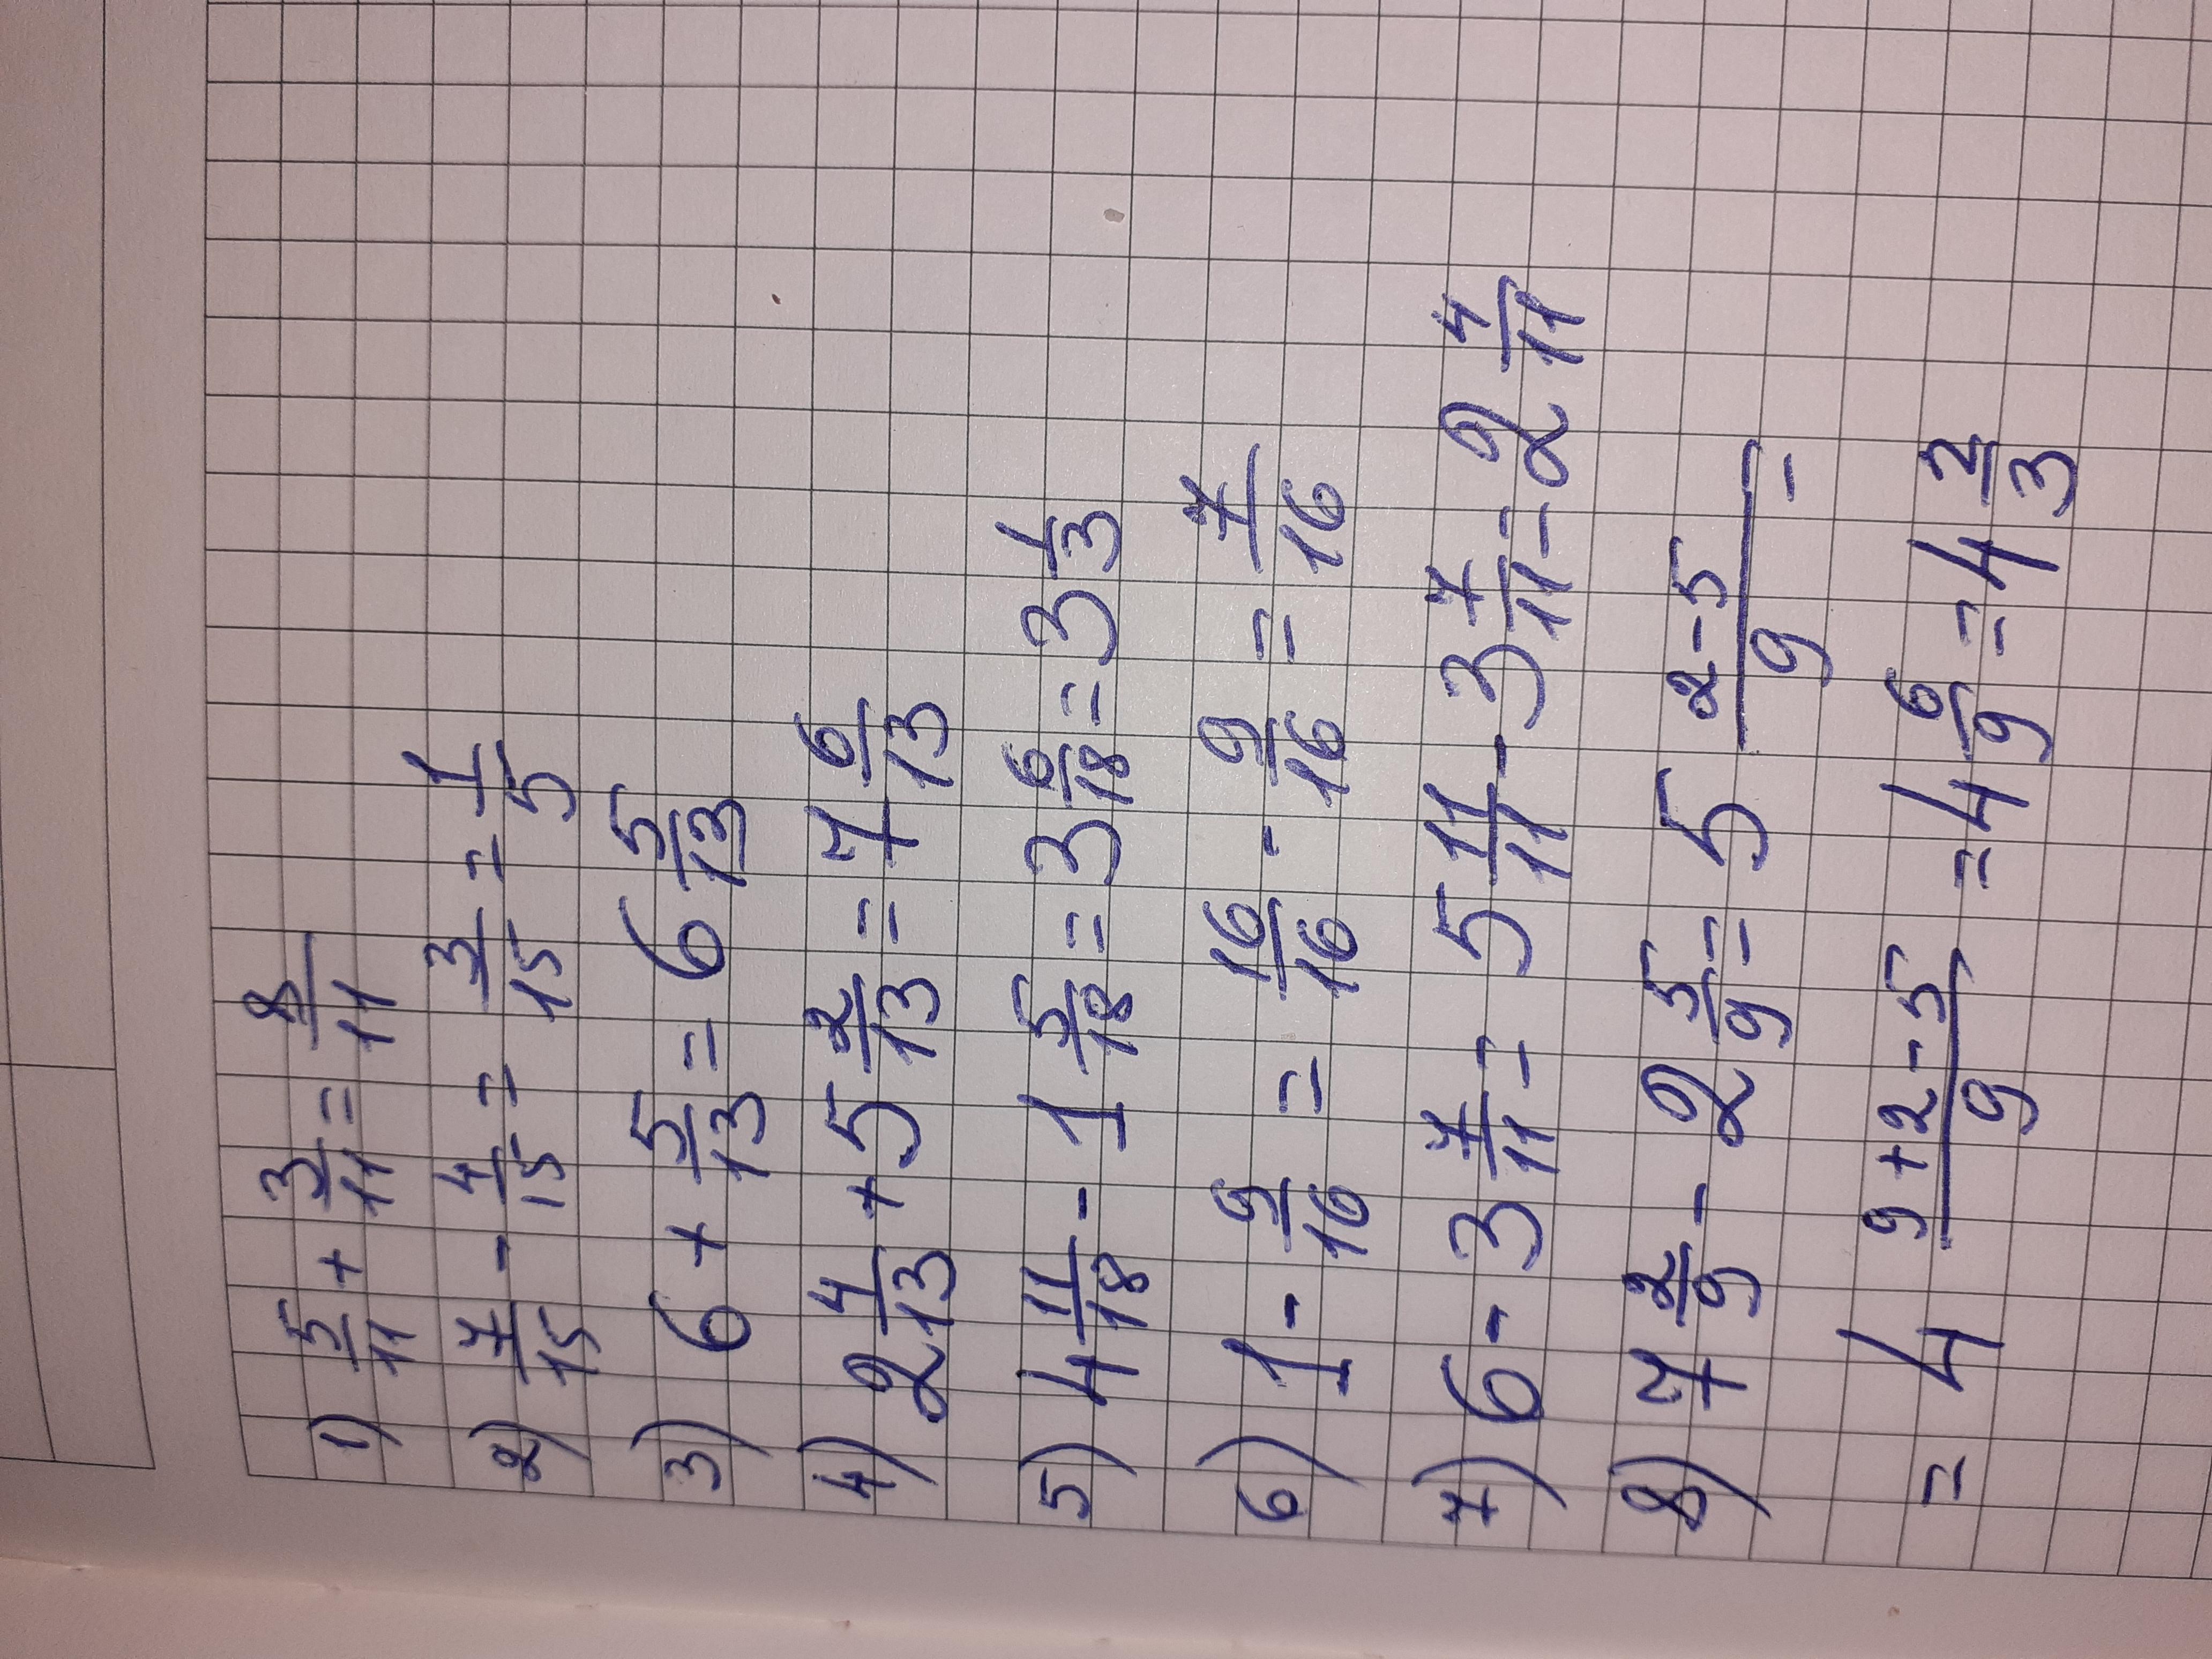 1) 5/11 + 3/11 = 8/11
2) 7/15 - 4/15 = 3/15 = 1/5
3) 6 + 5/13 = 6 5/13
4) 2 4/13 + 5 2/13 = 7 6/13
5) 4 11/18 - 1 5/18 = 3 6/18 = 3 1/3
6) 1 - 9/16 = 16/16 - 9/16 = 7/16
7) 6 - 3 7/11 = 5 11/11 - 3 7/11 = 2 4/11
8) 7 2/9 - 2 5/9 = 5 (2-5)/9 =
= 4 (9+2-5)/9 = 4 6/9 = 4 2/3